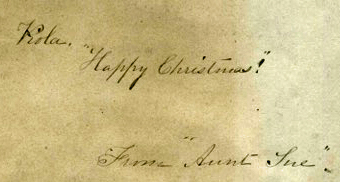 Viola.
"Happy Christmas!"
From "Aunt Sue".